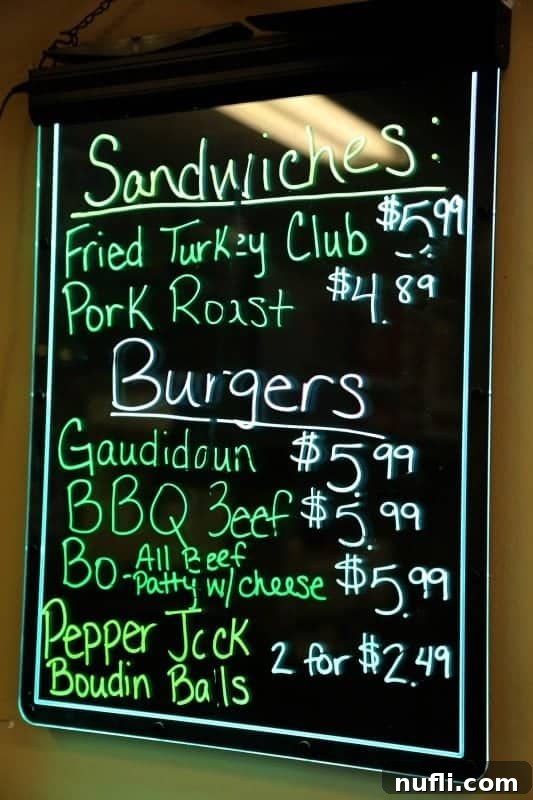 Sandwiches:
Fried Turkey Club $5.99
Pork Roast $4.89
Burgers
Gaudidoun $5.99
BBQ Beef $5.99
Bo- All Beef Patty w/ cheese $5.99
Pepper Jack
Boudin Balls 2 for $2.49
nufli.com